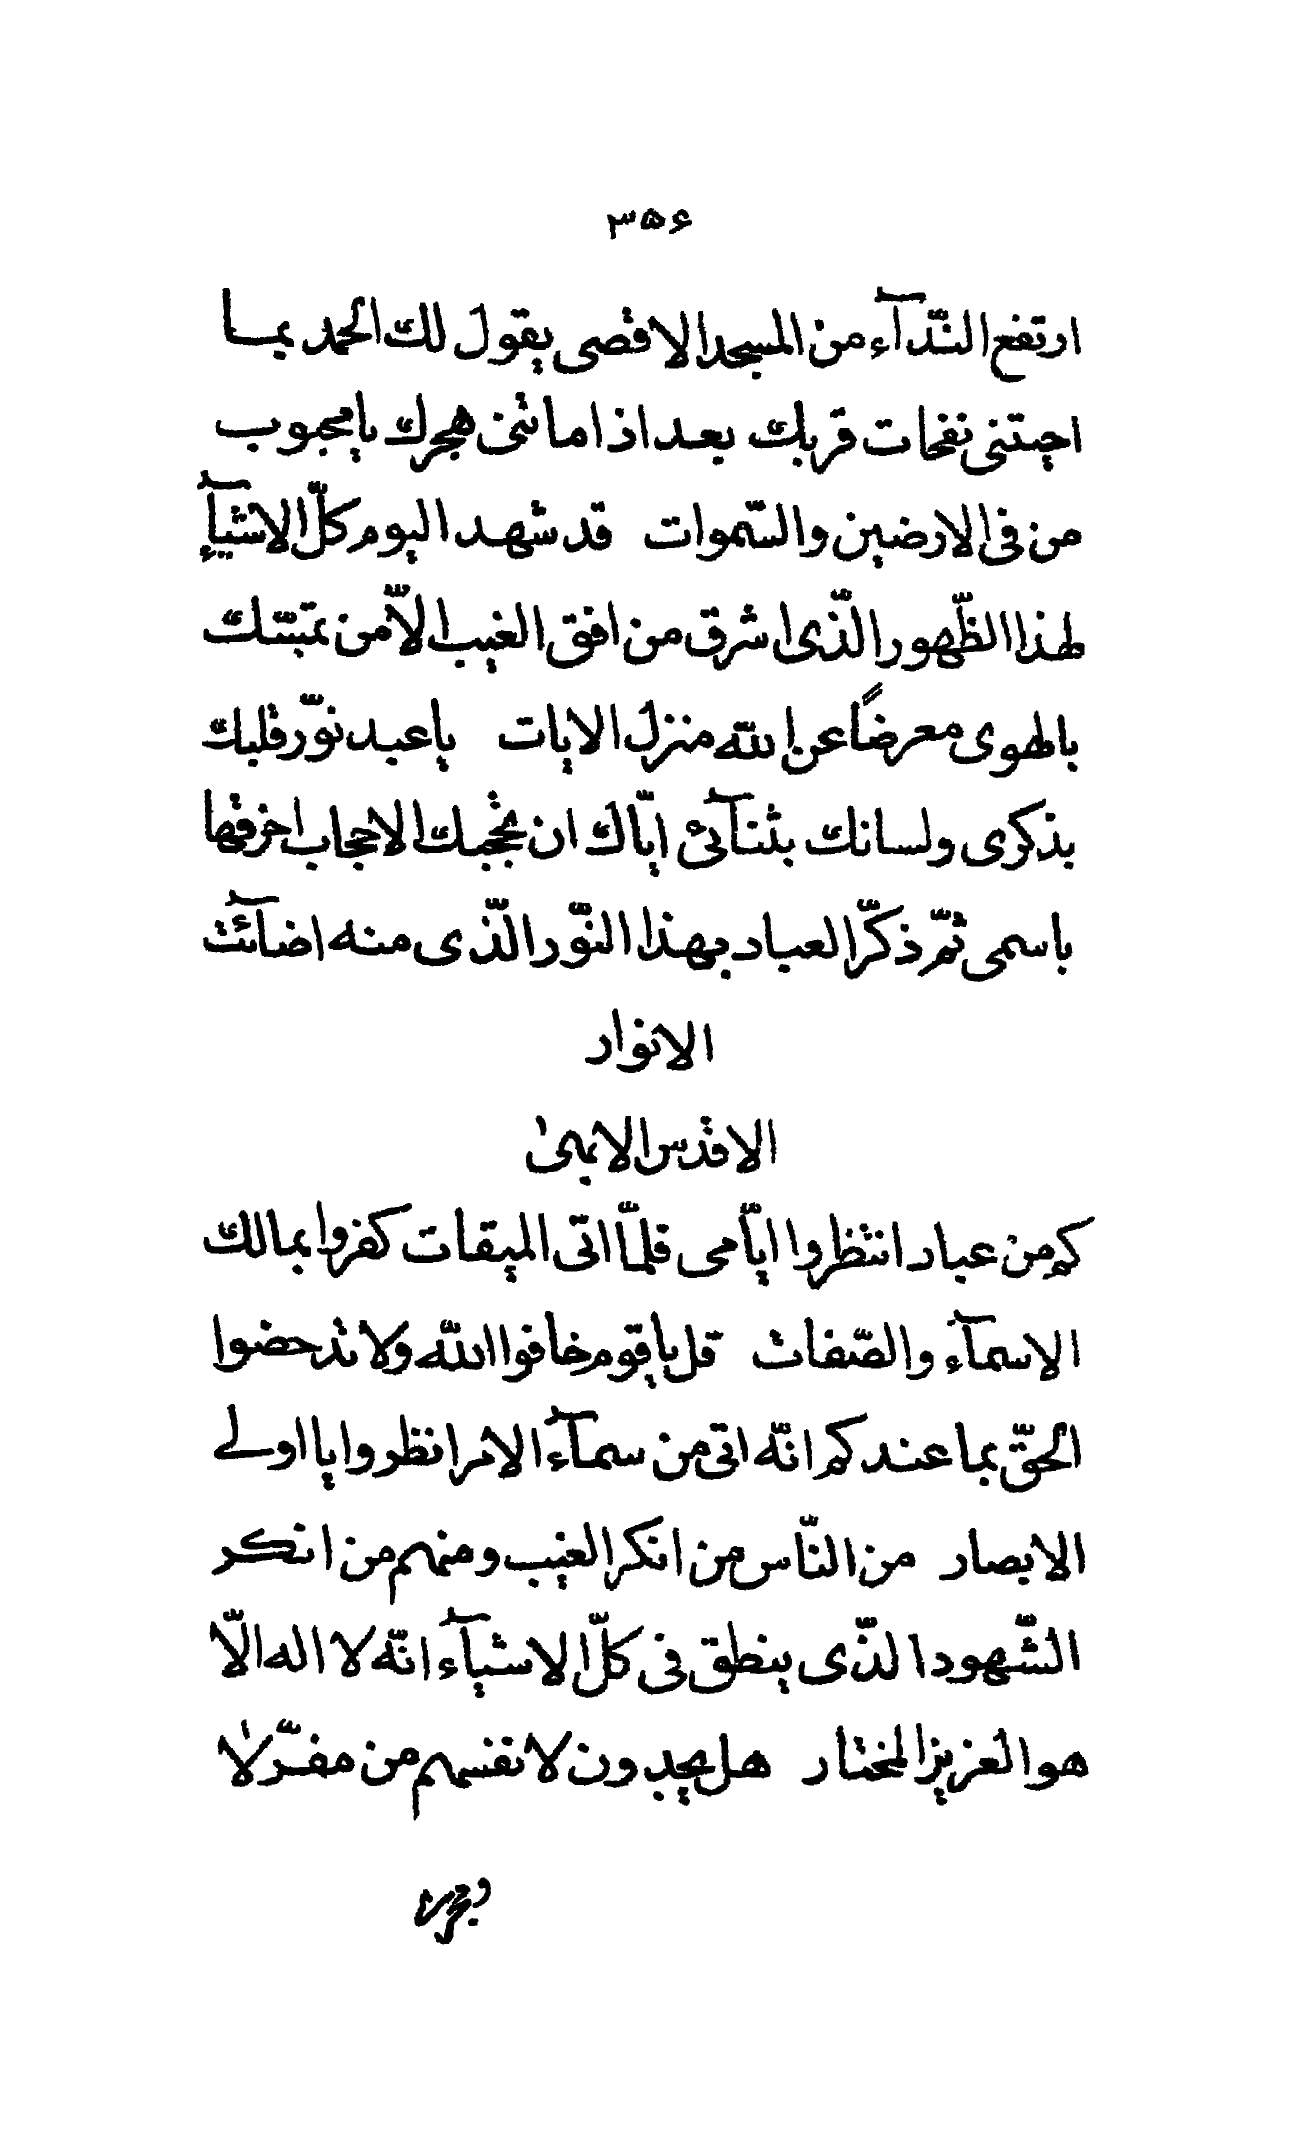 ۳۵۶
ارتفع النّدآء من المسجد الاقصی یقول لك الحمد بما
احیتنی نفحات قربك بعد اذ اماتنی هجرك یا محبوب
من فی الارضین والسّموات قد شهد الیوم کلّ الاشیآء
لهذا الظّهور الّذی اشرق من افق الغیب الّا من تمسّك
بالهوی معرضاً عن الله منزل الایات یا عبد نوّر قلبك
بذکری ولسانك بثنآئی ایّاك ان تحجبك الاحجاب اخرقها
باسمی ثمّ ذکّر العباد بهذا النّور الّذی منه اضآئت
الانوار
الاقدس الابهیٰ
کم من عباد انتظروا ایّامی فلمّا اتی المیقات کفروا بمالك
الاسمآء والصّفات قل یا قوم خافوا الله ولا تدحضوا
الحقّ بما عندکم انّه اتی من سمآء الامر انظروا یا اولے
الابصار من النّاس من انکر الغیب ومنهم من انکر
الشّهود الّذی ینطق فی کلّ الاشیآء انّه لا اله الّا
هو العزیز المختار هل یجدون لانفسهم من مفرّ لا